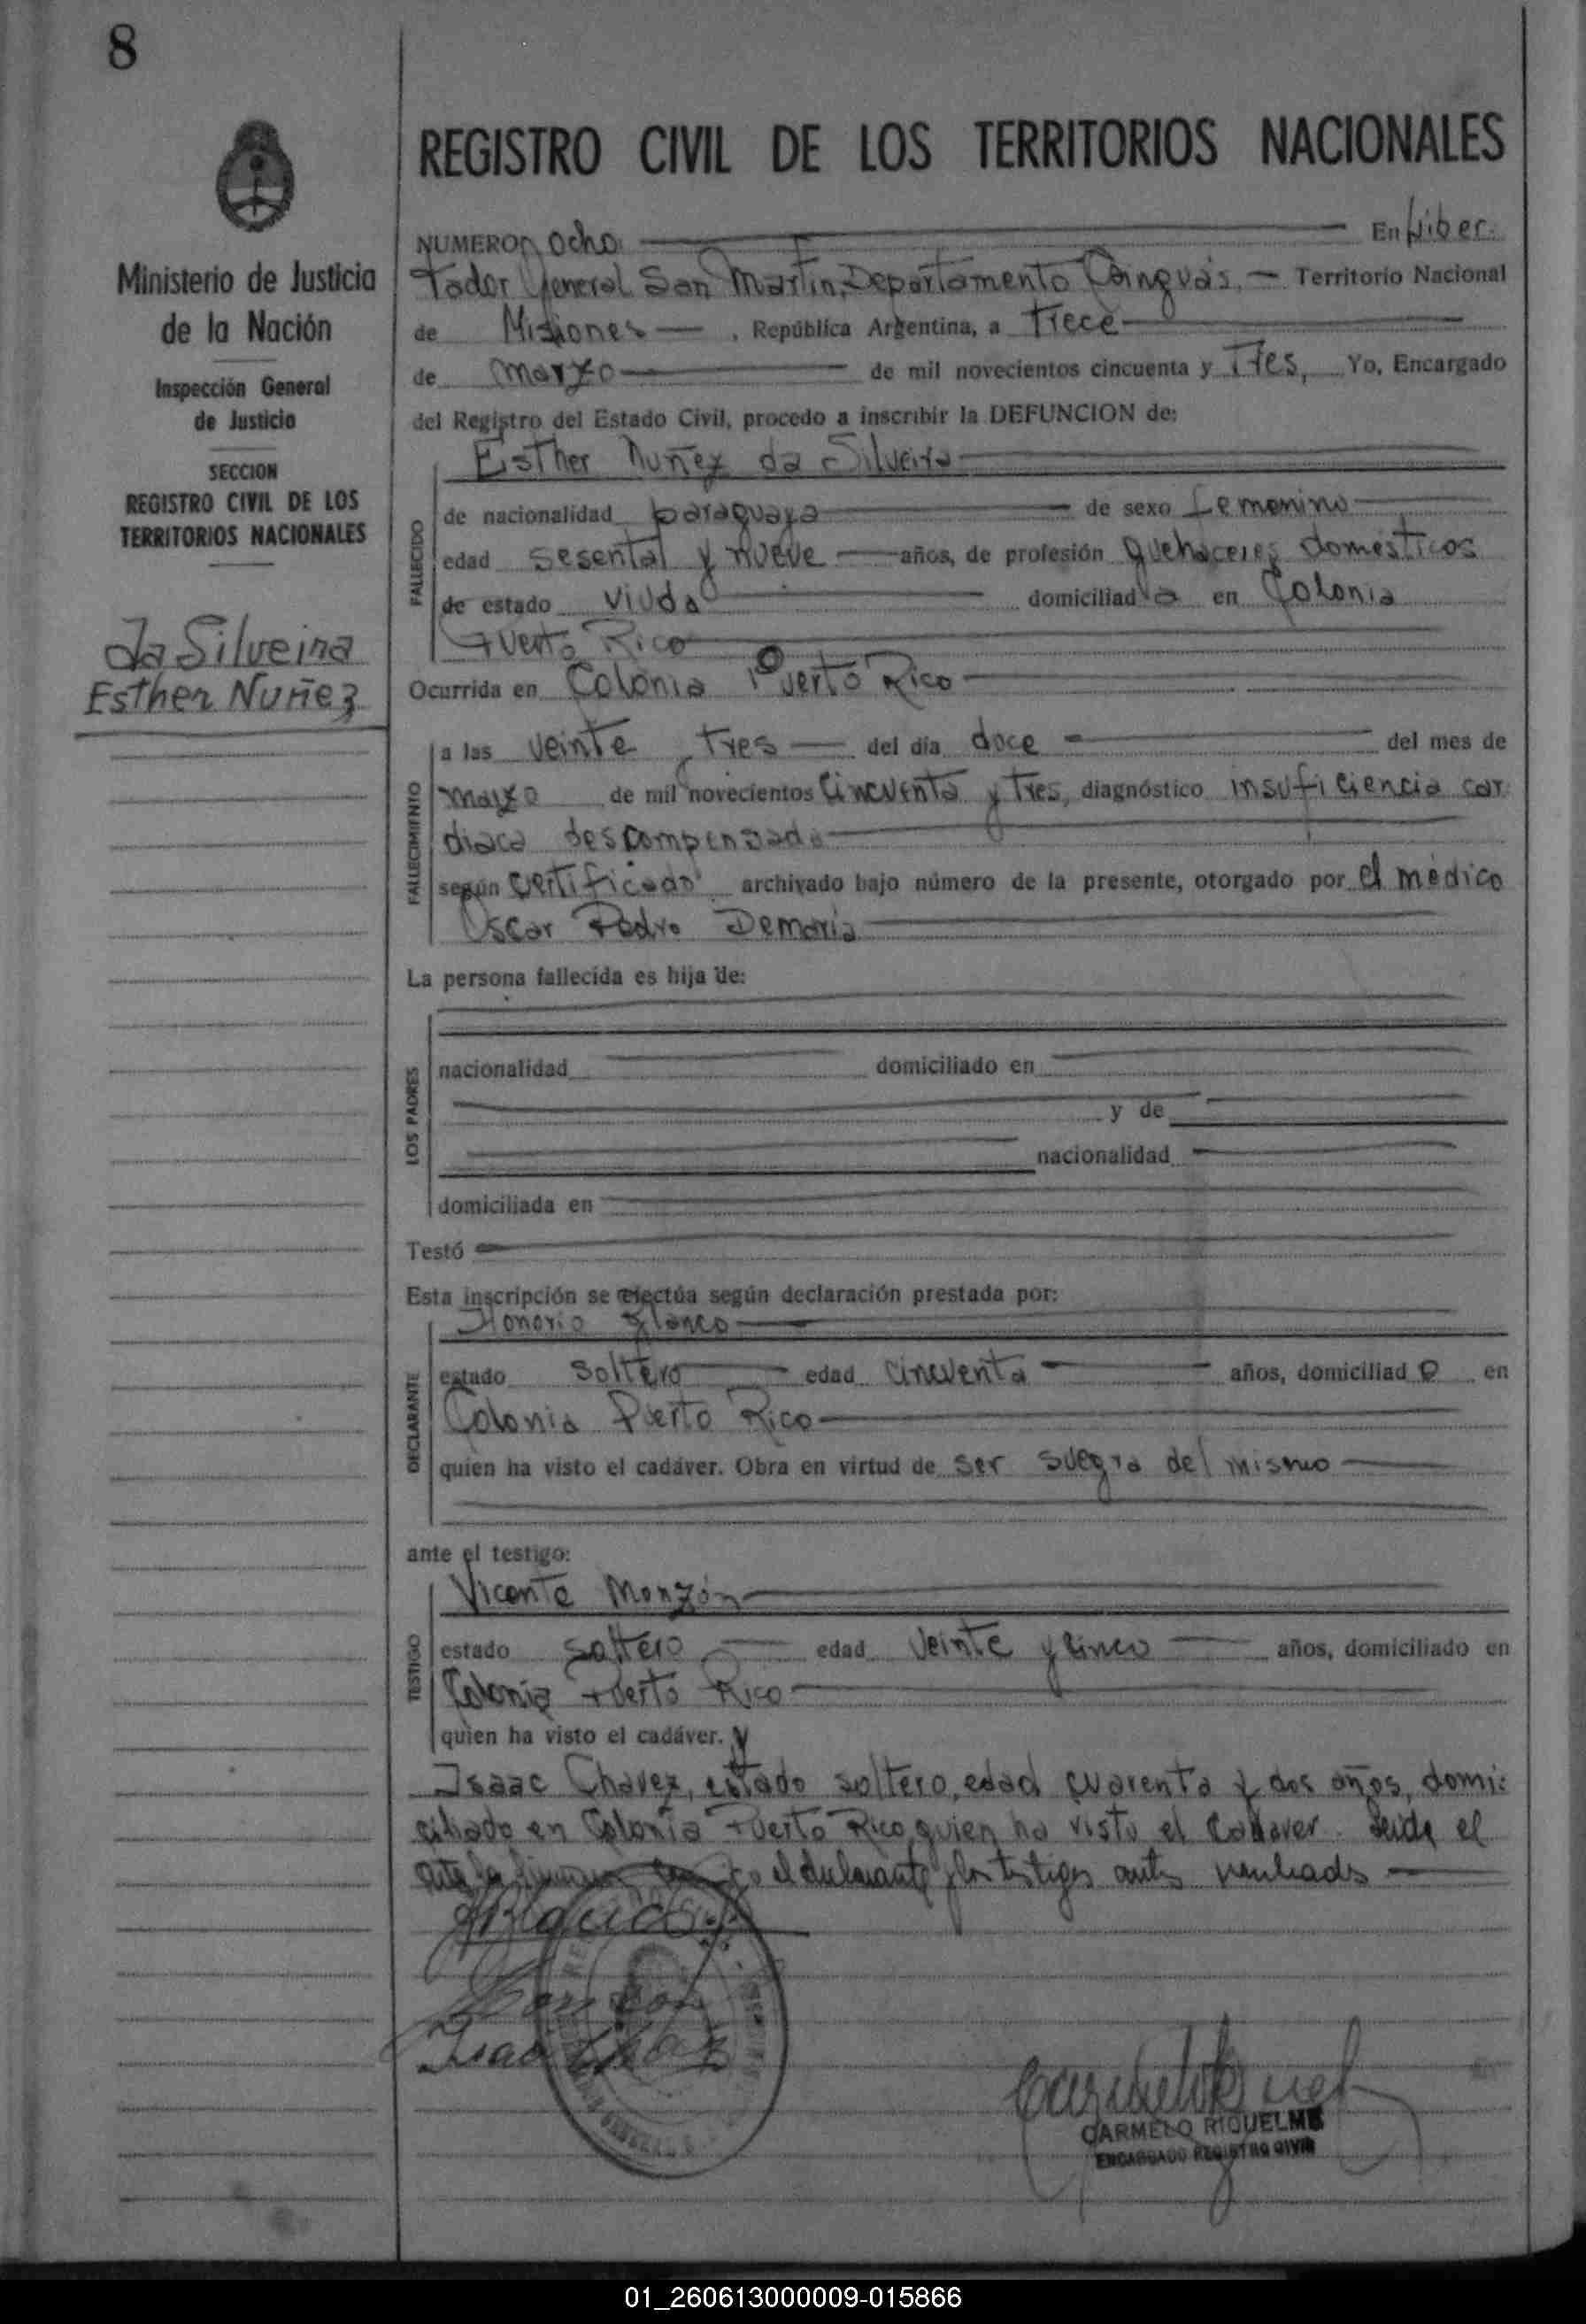 8
REGISTRO CIVIL DE LOS TERRITORIOS NACIONALES
Ministerio de Justicia
de la Nación
Inspección General
de Justicia
SECCION
REGISTRO CIVIL DE LOS
TERRITORIOS NACIONALES
da Silveira
Esther Nuñez
NUMERO ocho En Liber
tador General San Martín, Departamento Cainguás, Territorio Nacional
de Misiones, República Argentina, a trece
de marzo de mil novecientos cincuenta y Tres, Yo, Encargado
del Registro del Estado Civil, procedo a inscribir la DEFUNCION de:
Esther Nuñez da Silveira
FALLECIDO
de nacionalidad paraguaya de sexo femenino
edad sesenta y nueve años, de profesión quehaceres domésticos
de estado viuda domiciliada en Colonia
Puerto Rico
Ocurrida en Colonia Puerto Rico
FALLECIMIENTO
a las veinte tres del día doce del mes de
marzo de mil novecientos cincuenta y tres, diagnóstico insuficiencia car
diaca descompensada
según certificado archivado bajo número de la presente, otorgado por el médico
Oscar Pedro Demaría
La persona fallecida es hija de:
LOS PADRES
nacionalidad domiciliado en
y de
nacionalidad
domiciliada en
Testó
Esta inscripción se efectúa según declaración prestada por:
Honorio Blanco
DECLARANTE
estado soltero edad cincuenta años, domiciliado en
Colonia Puerto Rico
quien ha visto el cadáver. Obra en virtud de ser suegra del mismo
ante el testigo:
Vicente Monzón
TESTIGO
estado soltero edad veinte y cinco años, domiciliado en
Colonia Puerto Rico
quien ha visto el cadáver. y
Isaac Chavez, estado soltero, edad cuarenta y dos años, domi
ciliado en Colonia Puerto Rico, quien ha visto el cadaver. Leida el
el declarante y los testigos antes
CARMELO RIQUELME
ENCARGADO REGISTRO CIVIL
01_260613000009-015866